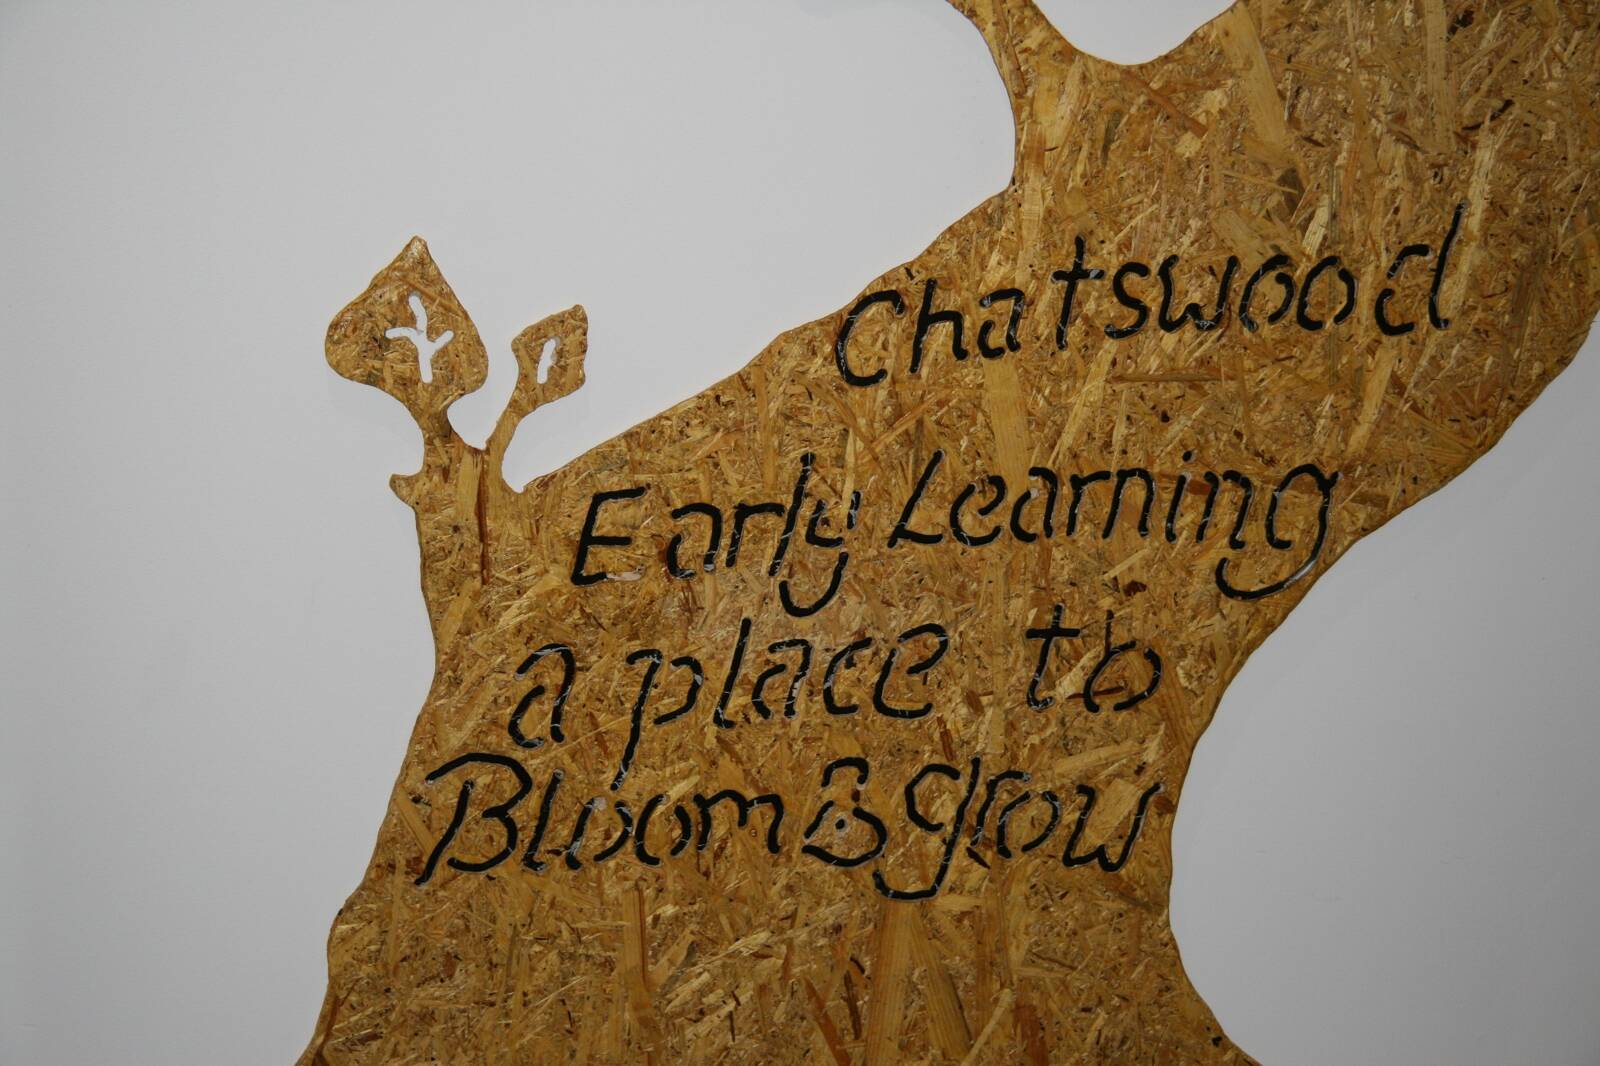 Chatswood
Early Learning
a place to
Bloom & grow